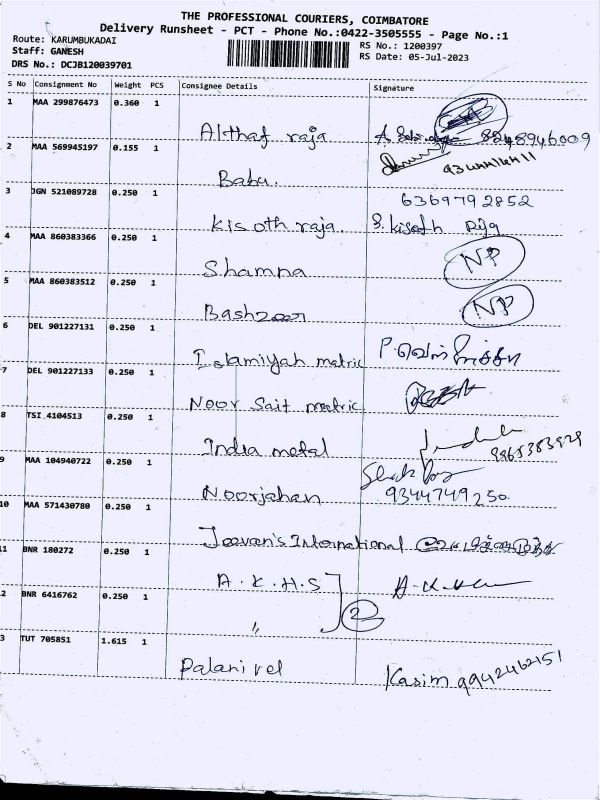 THE PROFESSIONAL COURIERS, COIMBATORE
Delivery Runsheet - PCT - Phone No.:0422-3505555 - Page No.:1
Route: KARUMBUKADAI
RS No.: 1200397
Staff: GANESH
RS Date: 05-Jul-2023
DRS No.: DCJB120039701
S No Consignment No Weight PCS Consignee Details Signature
1 MAA 299876473 0.360 1
Althaf raja 8248946009
2 MAA 569945197 0.155 1
Babu.
3 JGN 521089728 0.250 1 6369792852
Kisoth raja. S. Kisoth Raja
4 MAA 860383366 0.250 1 NP
Shamna
5 MAA 860383512 0.250 1 NP
Basheer
6 DEL 901227131 0.250 1
Islamiyah matric
7 DEL 901227133 0.250 1
Noor Sait matric
8 TSI 4104513 0.250 1
India metal
9 MAA 104940722 0.250 1
Noorjahan 9344749250
10 MAA 571430780 0.250 1
Jeevan's International
11 BNR 180272 0.250 1
A.K.H.S
2 BNR 6416762 0.250 1 2
"
3 TUT 705851 1.615 1
Palanivel Kasim 9942462151